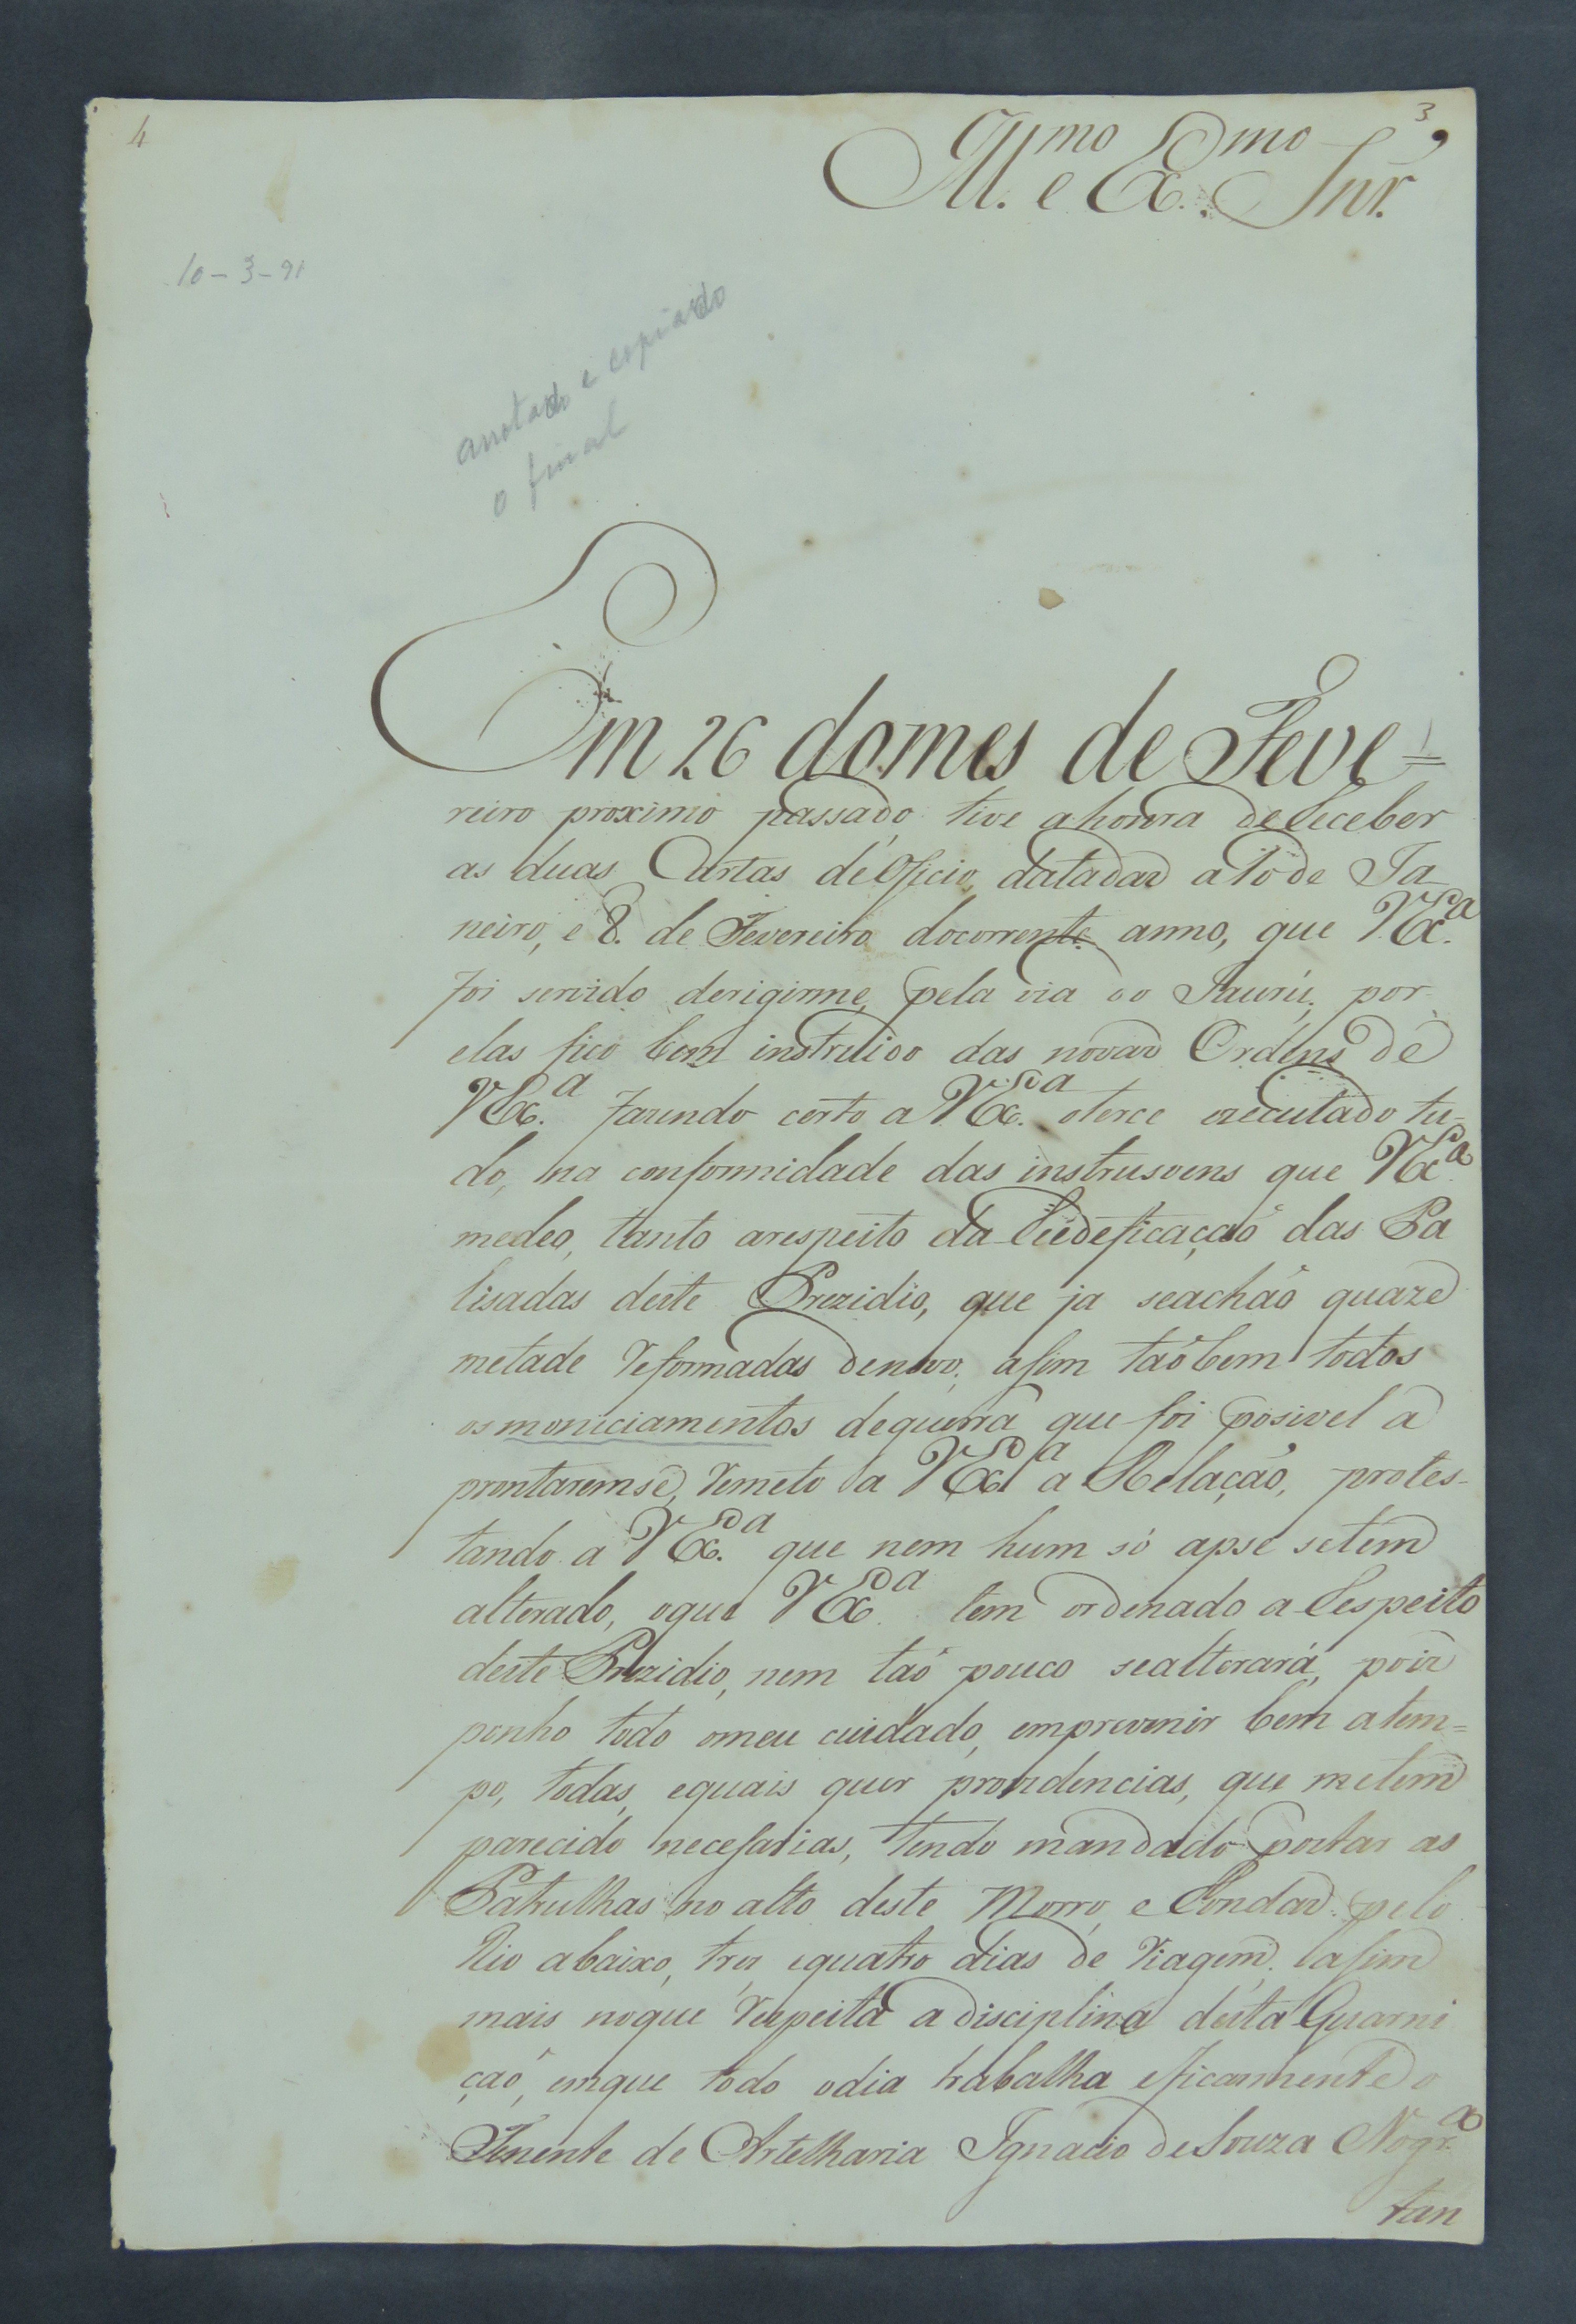 4
3
Ill.mo e Ex.mo Snr.
10-3-91
anotado e copiado
o final
Em 26 domes de Feve=
reiro proximo passado, tive ahonra de receber
as duas Cartas de Oficio, datadas a 10 de Ja
neiro, e 8. de Fevereiro docorrente anno, que V.Ex.a
foi servido derigirme, pela via do Jaurú; por
elas fico bem instruido das novas Ordens de
V.Ex.a fazendo certo a V.Ex.a oterce executado tu-
do, na conformidade das instrusoens que V.Ex.a
medeo, tanto arespeito da Reedeficaçaõ das Pa
lisadas deste Prezidio, que ja seachaõ quaze
metade reformadas denovo; asim taõbem todos
os moniciamentos deguerra que foi posivel a
prontaremse, remeto a V.Ex.a a Relaçaõ, protes-
tando a V.Ex.a que nem hum só apse setem
alterado, oque V.Ex.a tem ordenado a respeito
deste Prezidio, nem taõ pouco sealterará, pois
ponho todo omeu cuidado, emprevenir bem atem=
po, todas, equais quer providencias, que metem
parecido necesarias, tendo mandado postar as
Patrulhas no alto deste Morro, e Rondas pelo
Rio abaixo, tres, equatro dias de Viagem, asim
mais noque respeita a disciplina desta Guarni
çaõ, emque todo odia trabalha eficasmente o
Tenente de Artelharia Ignacio de Souza Nogr.a
tan